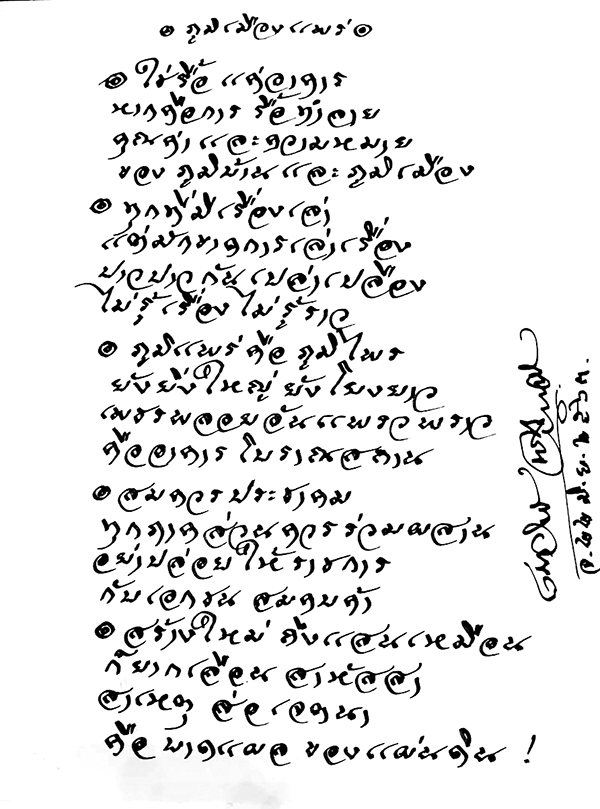 ๏ ภูมิเมืองแพร่ ๏
๏ ใช่รื้อ แค่อาคาร
หากคือการ รื้อทำลาย
คุณค่า และความหมาย
ของ ภูมิบ้าน และ ภูมิเมือง
๏ ทุกที่มีเรื่องเล่า
แต่มักขาดการเล่าเรื่อง
ป่าวปาวกันเปล่าเปลือง
ไม่รู้เรื่อง ไม่รู้ราว
๏ ภูมิแพร่ คือ ภูมิไพร
ยังยิ่งใหญ่ ยังโยงยาว
เพชรพลอยอันแพรวพราว
คืออาคาร โบราณสถาน
๏ สมควร ประชาคม
ทุกภาคส่วนควร ร่วมผสาน
อย่าปล่อยให้ราชการ
กับเอกชน สมคบค้า
๏ สร้างใหม่ ถึงแสนเหมือน
ก็ยากเลือน สาหัสสา
สาเหตุ ส่อเจตนา
คือ บาดแผล ของแผ่นดิน !
เนาวรัตน์
จ. ๒๒ มิ.ย. ๒๕๖๓.